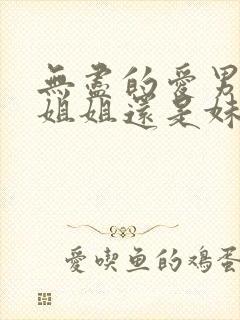 無盡的愛男
姐姐還是妹
愛喫魚的鸡蛋